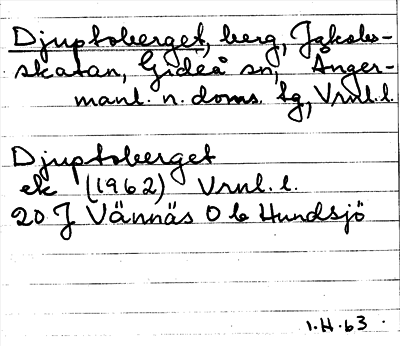 Djuptoberget, berg, Jakobs-
skatan, Gideå sn, Ånger-
manl. n. doms. tg, Vrnl.l.
Djuptoberget
ek (1962) Vrnl.l.
20 J Vännäs 0 b Hundsjö
1.H.63